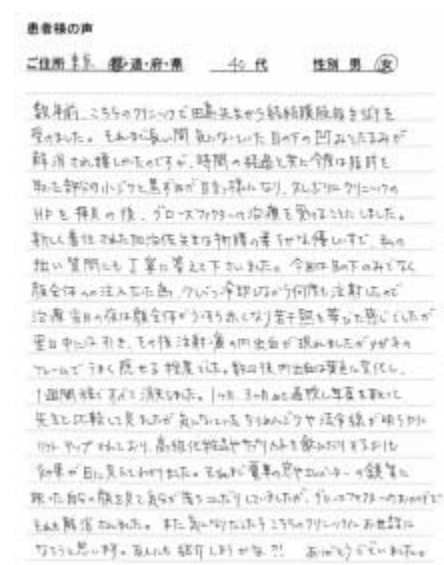 患者様の声
ご住所 東京 都・道・府・県 40代 性別 男 女
数年前、こちらのクリニックで田島先生から経結膜脱脂手術を
受けました。それまで長い間気になっていた目の下の凹みとたるみが
解消され嬉しかったのですが、時間の経過と共に今度は脂肪を
取った部分の小ジワと黒ずみが目立つ様になり、久しぶりにクリニックの
HPを拝見の後、グロースファクターの治療を受けることにしました。
新しく着任された加治佐先生は物腰の柔らかな優しい方で、私の
拙い質問にも丁寧に答えて下さいました。今回は目の下のみでなく
顔全体への注入だった為、クレーン冷却しながら何度も注射したので
治療当日の夜は顔全体がうっすら赤くなり若干熱を帯びた感じでしたが
翌日中には引き、その後注射痕の内出血が現れましたがメガネの
フレームでうまく隠せる程度でした。数日後内出血は黄色に変化し、
1週間後にはすべて消失しました。1ヶ月、3ヶ月めと通院し写真を取って
先生と比較して見ましたが気になっていたちりめんジワや法令線が明らかに
リフトアップされており、高級化粧品やサプリメントを飲んだりするより
効果が目に見えてわかりました。それまで電車の窓やエレベーターの鏡等に
映った自分の顔を見て自分が落ちこんだりしていましたが、グロースファクターのおかげで
それも解消されました。また気になりだしたらこちらのクリニックにお世話に
なろうと思います。友人にも紹介しようかな?! ありがとうございました。